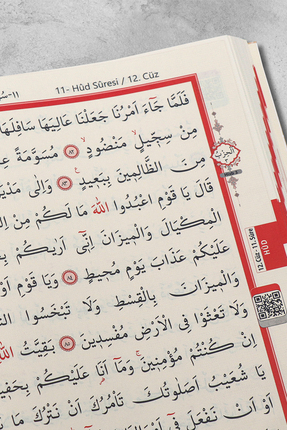 11- Hûd Sûresi / 12. Cüz
فَلَمَّا جَآءَ اَمْرُنَا جَعَلْنَا عَالِيَهَا سَافِلَهَا
مِنْ سِجّ۪يلٍ مَنْضُودٍۙ ﴿٨٢﴾ مُسَوَّمَةً
مِنَ الظَّالِم۪ينَ بِبَع۪يدٍ ﴿٨٣﴾ وَاِلٰى
قَالَ يَا قَوْمِ اعْبُدُوا اللّٰهَ مَا لَكُمْ مِنْ
الْمِكْيَالَ وَالْم۪يزَانَ اِنّ۪ٓي اَرٰيكُمْ
عَلَيْكُمْ عَذَابَ يَوْمٍ مُح۪يطٍ ﴿٨٤﴾ وَيَا قَوْمِ
وَالْم۪يزَانَ بِالْقِسْطِ وَلَا تَبْخَسُوا
وَلَا تَعْثَوْا فِي الْاَرْضِ مُفْسِد۪ينَ ﴿٨٥﴾ بَقِيَّتُ
اِنْ كُنْتُمْ مُؤْمِن۪ينَ وَمَٓا اَنَا۬ عَلَيْكُمْ
يَا شُعَيْبُ اَصَلٰوتُكَ تَأْمُرُكَ اَنْ نَتْرُكَ مَا
اَوْ اَنْ نَفْعَلَ ف۪ٓي
12.Cüz - 11.Sûre
HÛD